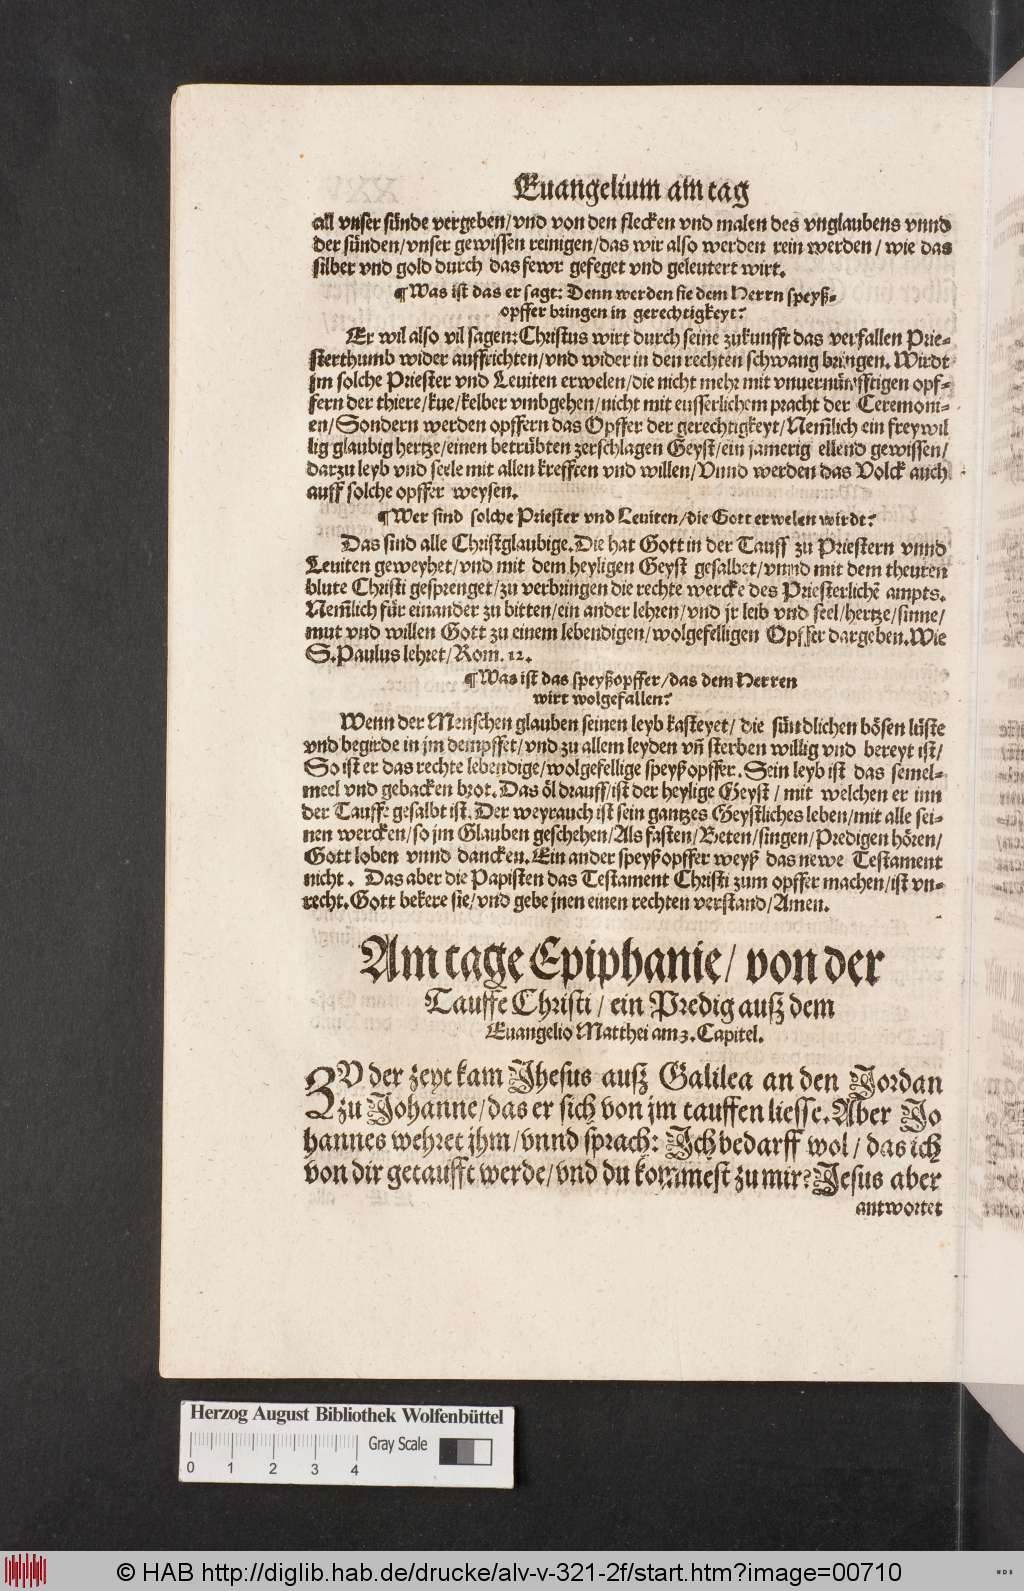 Euangelium am tag
all vnser sünde vergeben/vnd von den flecken vnd malen des vnglaubens vnnd
der sünden/vnser gewissen reinigen/das wir also werden rein werden/ wie das
silber vnd gold durch das fewr gefeget vnd geleutert wirt.
¶Was ist das er sagt: Denn werden sie dem Herrn speyß-
opffer bringen in gerechtigkeyt?
Er wil also vil sagen: Christus wirt durch seine zukunfft das verfallen Prie-
sterthumb wider auffrichten/vnd wider in den rechten schwang bringen. Wirdt
jm solche Priester vnd Leuiten erwelen/die nicht mehr mit vnuernünfftigen opf-
fern der thiere/kue/kelber vmbgehen/nicht mit eusserlichem pracht der Ceremoni-
en/Sondern werden opffern das Opffer der gerechtigkeyt/Nem̃lich ein freywil
lig glaubig hertze/einen betrübten zerschlagen Geyst/ein jamerig ellend gewissen/
darzu leyb vnd seele mit allen krefften vnd willen/Vnnd werden das Volck auch
auff solche opffer weysen.
¶Wer sind solche Priester vnd Leuiten/die Gott erwelen wirdt?
Das sind alle Christglaubige. Die hat Gott in der Tauff zu Priestern vnnd
Leuiten geweyhet/vnd mit dem heyligen Geyst gesalbet/vnnd mit dem theuren
blute Christi gesprenget/zu verbringen die rechte wercke des Priesterlichẽ ampts.
Nem̃lich für einander zu bitten/ein ander lehren/vnd jr leib vnd seel/hertze/sinne/
mut vnd willen Gott zu einem lebendigen/wolgefelligen Opffer dargeben. Wie
S. Paulus lehret/Rom. 12.
¶Was ist das speyßopffer/das dem Herren
wirt wolgefallen?
Wenn der Menschen glauben seinen leyb kasteyet/ die sündlichen bösen lüste
vnd begirde in jm dempffet/vnd zu allem leyden vñ sterben willig vnd bereyt ist/
So ist er das rechte lebendige/wolgefellige speyßopffer. Sein leyb ist das semel-
meel vnd gebacken brot. Das öl drauff/ist der heylige Geyst / mit welchen er inn
der Tauffe gesalbt ist. Der weyrauch ist sein gantzes Geystliches leben/mit alle sei-
nen wercken/so jm Glauben geschehen/Als fasten/Beten/singen/Predigen hören/
Gott loben vnnd dancken. Ein ander speyßopffer weyß das newe Testament
nicht. Das aber die Papisten das Testament Christi zum opffer machen/ist vn-
recht. Gott bekere sie/vnd gebe jnen einen rechten verstand/Amen.
Am tage Epiphanie/ von der
Tauffe Christi / ein Predig auß dem
Euangelio Matthei am 3. Capitel.
ZV der zeyt kam Jhesus auß Galilea an den Jordan
zu Johanne/das er sich von jm tauffen liesse. Aber Jo
hannes wehret jhm/vnnd sprach: Jch bedarff wol/ das ich
von dir getaufft werde/vnd du kommest zu mir? Jesus aber
antwortet
Herzog August Bibliothek Wolfenbüttel
Gray Scale
0 1 2 3 4
© HAB http://diglib.hab.de/drucke/alv-v-321-2f/start.htm?image=00710